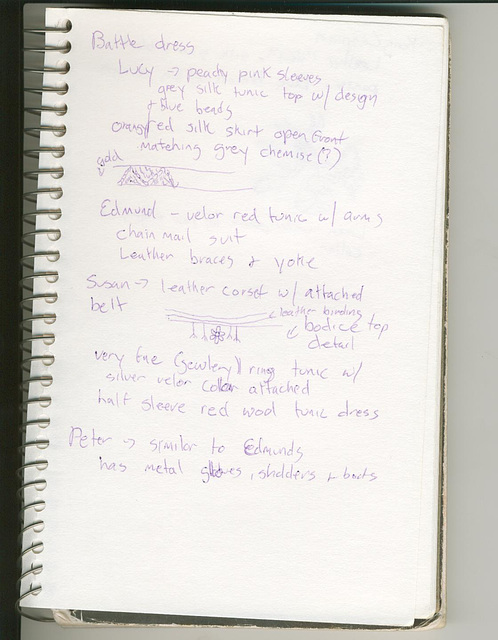 Battle dress
Lucy → peachy pink sleeves
grey silk tunic top w/ design
+ blue beads
orangy red silk skirt open front
matching grey chemise (?)
add
Edmund - velor red tunic w/ arms
chain mail suit
Leather braces + yoke
Susan → leather corset w/ attached
belt
leather binding
bodice top
detail
very fine (jewlery) ring tunic w/
silver velor collar attached
half sleeve red wool tunic dress
Peter → similar to Edmunds
has metal gloves, sholders + boots